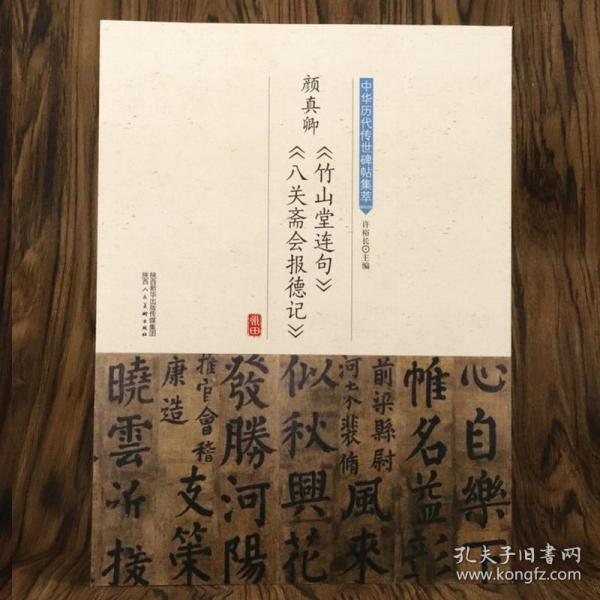 中华历代传世碑帖集萃
许裕长⊙主编
颜真卿
《竹山堂连句》
《八关斋会报德记》
陕西新华出版传媒集团
陕西人民美术出版社
心自樂
帷名益彰
前梁縣尉
河東裴脩
風來
似秋興花
發勝河陽
推官會稽
康造
支策
曉雲近接
孔夫子旧书网
www.kongfz.com